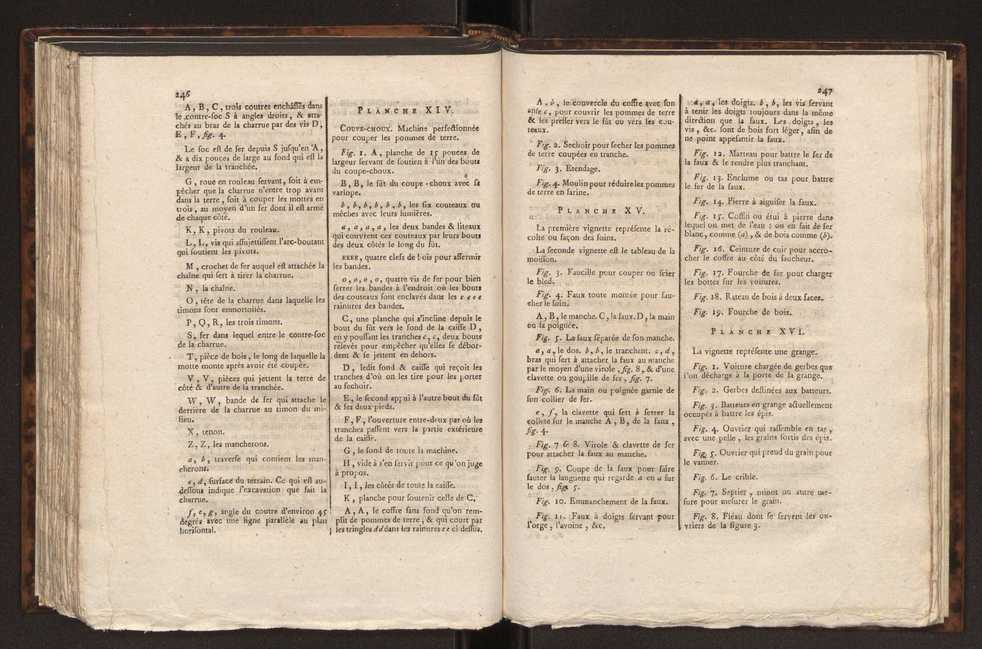 246
A, B, C, trois coutres enchâssés dans
le contre-soc S à angles droits, & atta-
chés au bras de la charrue par des vis D,
E, F, fig. 4.
Le soc est de fer depuis S jusqu'en A,
& a dix pouces de large au fond qui est la
largeur de la tranchée.
G, roue en rouleau servant, soit à em-
pêcher que la charrue n'entre trop avant
dans la terre, soit à couper les mottes en
trois, au moyen d'un fer dont il est armé
de chaque côté.
K, K, pivots du rouleau.
L, L, vis qui assujettissent l'arc-boutant
qui soutient les pivots.
M, crochet de fer auquel est attachée la
chaîne qui sert à tirer la charrue.
N, la chaîne.
O, tête de la charrue dans laquelle les
timons sont emmortoisés.
P, Q, R, les trois timons.
S, fer dans lequel entre le contre-soc
de la charrue.
T, pièce de bois, le long de laquelle la
motte monte après avoir été coupée.
V, V, pièces qui jettent la terre de
côté & d'autre de la tranchée.
W, W, bande de fer qui attache le
derrière de la charrue au timon du mi-
lieu.
X, tenon.
Z, Z, les mancherons.
a, b, traverse qui contient les man-
cherons.
c, d, surface du terrain. Ce qui est au-
dessous indique l'excavation que fait la
charrue.
f, e, g, angle du coutre d'environ 45
degrés avec une ligne parallèle au plan
horisontal.
PLANCHE XIV.
COUPE-CHOUX. Machine perfectionnée
pour couper les pommes de terre.
Fig. 1. A, planche de 15 pouces de
largeur servant de soutien à l'un des bouts
du coupe-choux.
B, B, le fût du coupe-choux avec sa
varlope.
b, b, b, b, b, b, les six couteaux ou
mèches avec leurs lumières.
a, a, a, a, les deux bandes & liteaux
qui couvrent ces couteaux par leurs bouts
des deux côtés le long du fût.
eeee, quatre clefs de bois pour affermir
les bandes.
o, o, o, o, quatre vis de fer pour bien
serrer les bandes à l'endroit où les bouts
des couteaux sont enclavés dans les e e e e
rainures des bandes.
C, une planche qui s'incline depuis le
bout du fût vers le fond de la caisse D,
en y poussant les tranches c, c, deux bouts
relevés pour empêcher qu'elles se débor-
dent & se jettent en dehors.
D, ledit fond & caisse qui reçoit les
tranches d'où on les tire pour les porter
au sechoir.
E, le second appui à l'autre bout du fût
& ses deux pieds.
F, F, l'ouverture entre-deux par où les
tranches passent vers la partie extérieure
de la caisse.
G, le fond de toute la machine.
H, vide à s'en servir pour ce qu'on juge
à propos.
I, I, les côtés de toute la caisse.
K, planche pour soutenir celle de C.
A, A, le coffre sans fond qu'on rem-
plit de pommes de terre, & qui court par
les tringles d d dans les rainures c c ci dessus.
247
A, b, le couvercle du coffre avec son
anse c, pour couvrir les pommes de terre
& les presser vers le fût ou vers les cou-
teaux.
Fig. 2. Sechoir pour secher les pommes
de terre coupées en tranche.
Fig. 3. Etendage.
Fig. 4. Moulin pour réduire les pommes
de terre en farine.
PLANCHE XV.
La première vignette représente la ré-
colte ou façon des foins.
La seconde vignette est le tableau de la
moisson.
Fig. 3. Faucille pour couper ou scier
le bled.
Fig. 4. Faux toute montée pour fau-
cher le foin.
A, B, le manche. C, la faux. D, la main
ou la poignée.
Fig. 5. La faux séparée de son manche.
a, a, le dos. b, b, le tranchent. c, d,
bras qui sert à attacher la faux au manche
par le moyen d'une virole, fig. 8, & d'une
clavette ou goupille de fer, fig. 7.
Fig. 6. La main ou poignée garnie de
son collier de fer.
e, f, la clavette qui sert à serrer la
collete sur le manche A, B, de la faux,
fig. 4.
Fig. 7 & 8. Virole & clavette de fer
pour attacher la faux au manche.
Fig. 9. Coupe de la faux pour faire
sauter la languette qui regarde a en a sur
le dos, fig. 5.
Fig. 10. Emmanchement de la faux.
Fig. 11. Faux à doigts servant pour
l'orge, l'avoine, &c.
a, a, les doigts. b, b, les vis servant
à tenir les doigts toujours dans la même
direction que la faux. Les doigts, les
vis, &c. sont de bois fort léger, afin de
ne point appesantir la faux.
Fig. 12. Marteau pour battre le fer de
la faux & le rendre plus tranchant.
Fig. 13. Enclume ou tas pour battre
le fer de la faux.
Fig. 14. Pierre à aiguiser la faux.
Fig. 15. Coffin ou étui à pierre dans
lequel on met de l'eau : on en fait de fer
blanc, comme (a), & de bois comme (b).
Fig. 16. Ceinture de cuir pour accro-
cher le coffin au côté du faucheur.
Fig. 17. Fourche de fer pour charger
les bottes sur les voitures.
Fig. 18. Rateau de bois à deux faces.
Fig. 19. Fourche de bois.
PLANCHE XVI.
La vignette représente une grange.
Fig. 1. Voiture chargée de gerbes que
l'on décharge à la porte de la grange.
Fig. 2. Gerbes destinées aux batteurs.
Fig. 3. Batteurs en grange actuellement
occupés à battre les épis.
Fig. 4. Ouvrier qui rassemble en tas,
avec une pelle, les grains sortis des épis.
Fig. 5. Ouvrier qui prend du grain pour
le vanner.
Fig. 6. Le crible.
Fig. 7. Septier, minot ou autre me-
sure pour mesurer le grain.
Fig. 8. Fléau dont se servent les ou-
vriers de la figure 3.